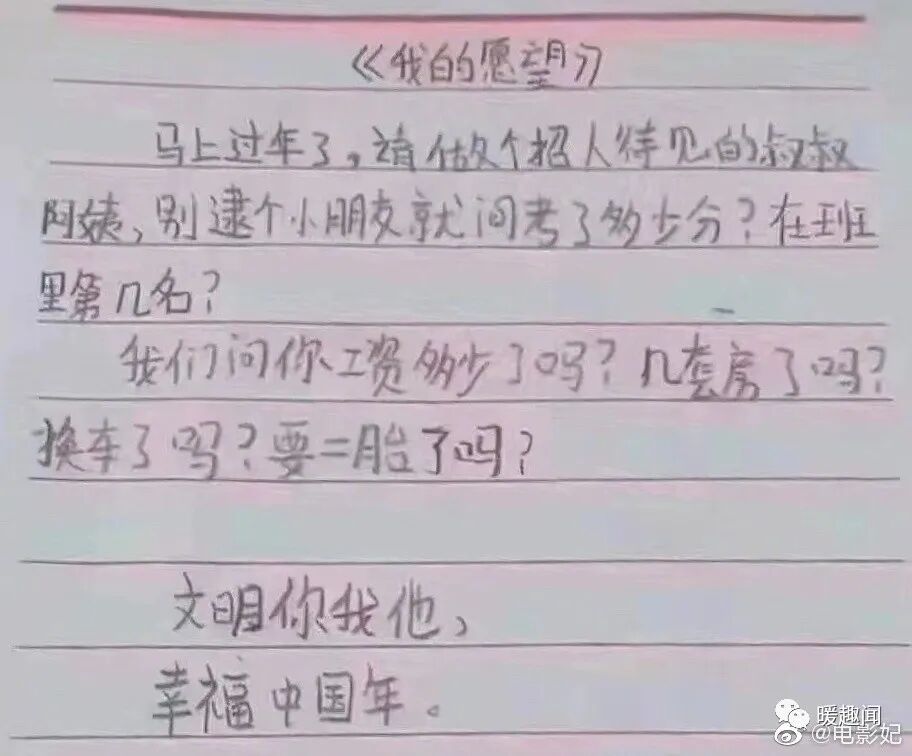 《我的愿望》
马上过年了，请做个招人待见的叔叔
阿姨，别逮个小朋友就问考了多少分？在班
里第几名？
我们问你工资多少了吗？几套房了吗？
换车了吗？要二胎了吗？
文明你我他，
幸福中国年。
暖趣闻
@电影妃